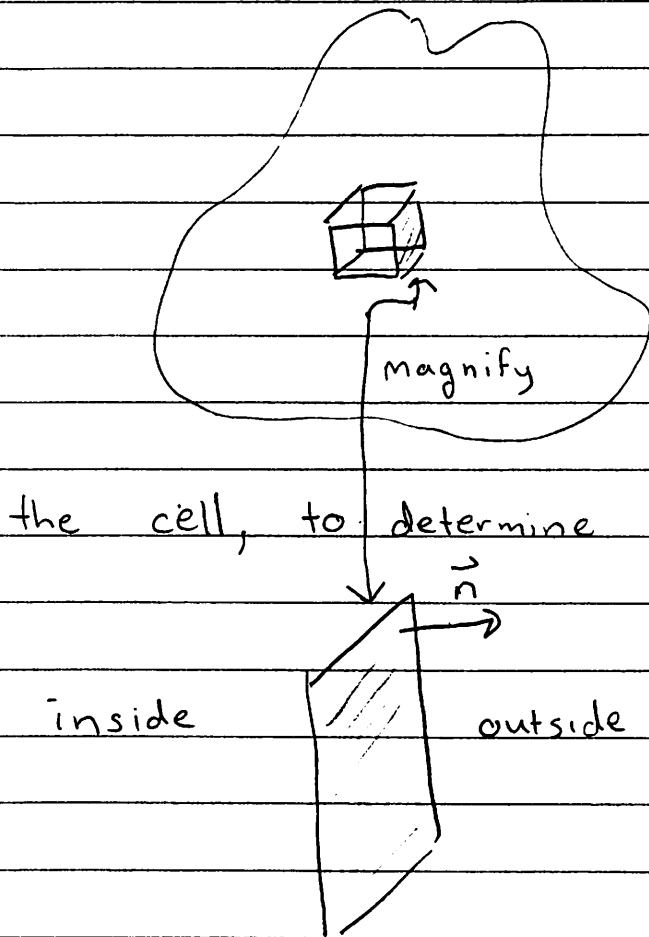 magnify
the cell, to determine
n
inside outside